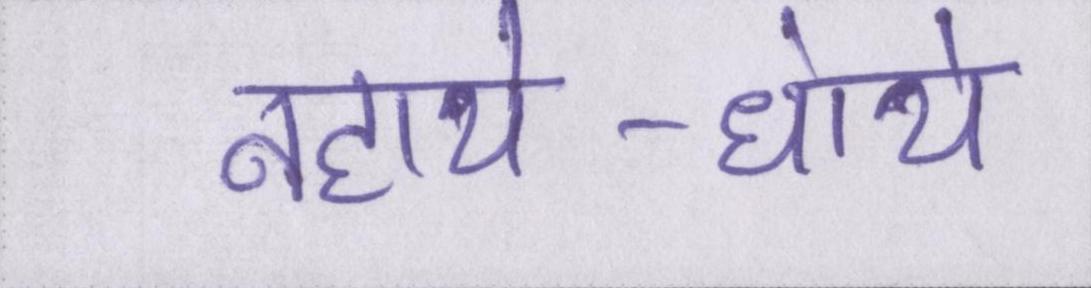 नहाये-धोये